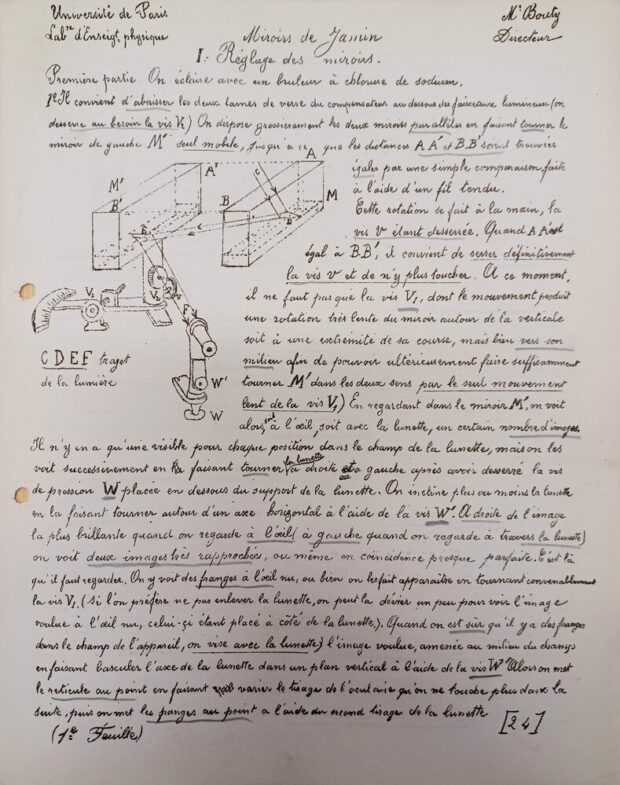 Université de Paris
Labre d'Enseigt physique
Mr Bouty
Directeur
Miroirs de Jamin
I: Réglage des miroirs.
Première partie On éclaire avec un bruleur à chlorure de sodium.
1º Il convient d'abaisser les deux lames de verre du compensateur au dessous des faisceaux lumineux (on
desserre au besoin la vis V.) On dispose grossièrement les deux miroirs parallèles en faisant tourner le
miroir de gauche M' seul mobile, jusqu'à ce que les distances AA' et BB' soient trouvées
égales par une simple comparaison faite
à l'aide d'un fil tendu.
Cette rotation se fait à la main, la
vis v étant desserrée. Quand AA' est
égal à BB', il convient de serrer définitivement
la vis v et de n'y plus toucher. A ce moment,
il ne faut pas que la vis V1, dont le mouvement produit
une rotation très lente du miroir autour de la verticale
soit à une extrémité de sa course, mais bien vers son
milieu afin de pouvoir ultérieurement faire suffisamment
tourner M' dans les deux sens par le seul mouvement
lent de la vis V1) En regardant dans le miroir M', on voit
alors, soit à l'œil, soit avec la lunette, un certain nombre d'images
A'
A
M'
B'
B
M
C
D
E
F
V1
V2
W'
W
CDEF trajet
de la lumière
Il n'y en a qu'une visible pour chaque position dans le champ de la lunette, mais on les
voit successivement en faisant tourner la lunette à droite ou à gauche après avoir desserré la vis
de pression W placée en dessous du support de la lunette. On incline plus ou moins la lunette
en la faisant tourner autour d'un axe horizontal à l'aide de la vis W'. A droite de l'image
la plus brillante quand on regarde à l'œil (à gauche quand on regarde à travers la lunette)
on voit deux images très rapprochées, ou même en coincidence presque parfaite. C'est là
qu'il faut regarder. On y voit des franges à l'œil nu, ou bien on les fait apparaître en tournant convenablement
la vis V1. (Si l'on préfère ne pas enlever la lunette, on peut la dévier un peu pour voir l'image
voulue à l'œil nu, celui-çi étant placé à côté de la lunette.). Quand on est sûr qu'il y a des franges
dans le champ de l'appareil, on vise avec la lunette) l'image voulue, amenée au milieu du champ
en faisant basculer l'axe de la lunette dans un plan vertical à l'aide de la vis W' Alors on met
le réticule au point en faisant varier le tirage de l'oculaire qu'on ne touche plus dans la
suite, puis on met les franges au point a l'aide du second tirage de la lunette.
(1re Feuille)
[24]